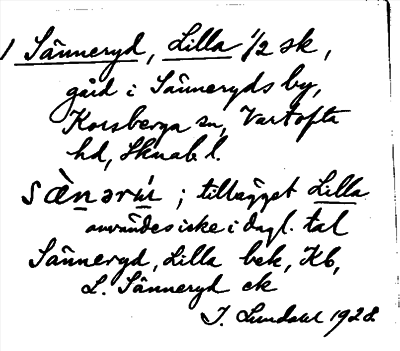 1 Sänneryd, Lilla 1/2 sk,
gård i Sänneryds by,
Korsberga sn, Vartofta
hd, Skarab. l.
sὰn̲ərẃ̲ ; tillägget Lilla
användes icke i dagl. tal
Sänneryd, Lilla bek, Kb,
L. Sänneryd ek
J. Lundahl 1928.